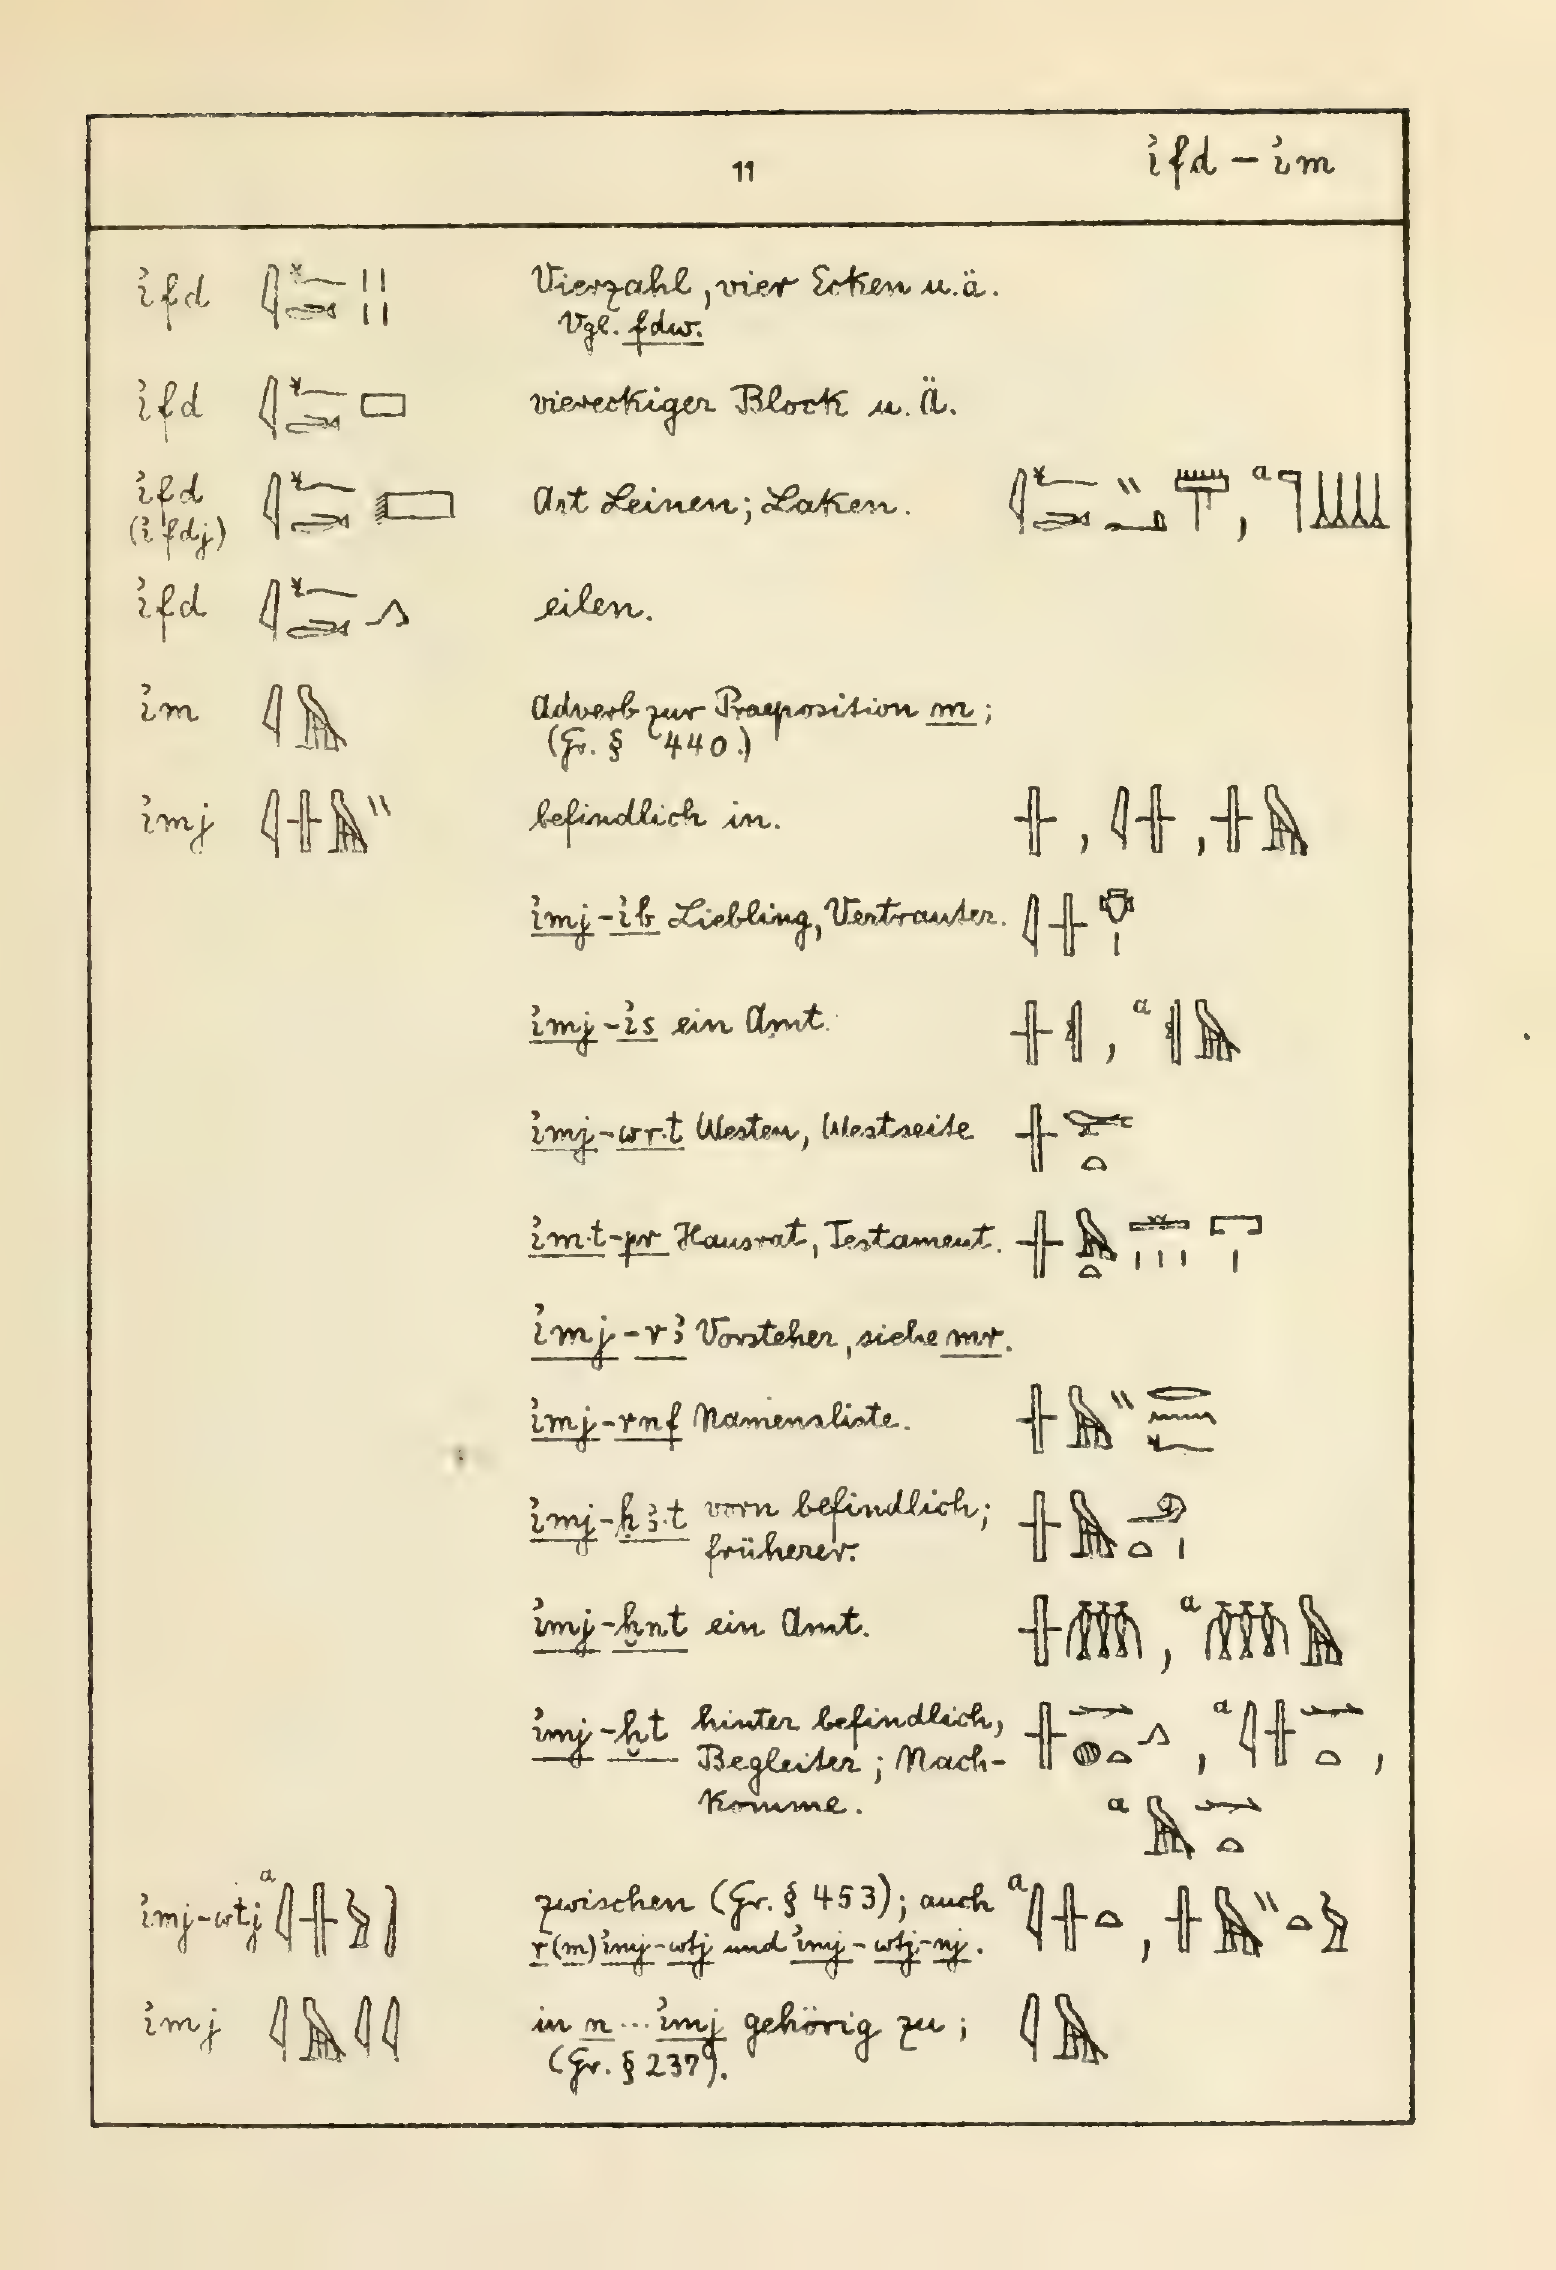 11 ỉfd – ỉm
ỉfd 𓇋𓆑𓂧𓏽 Vierzahl, vier Ecken u.ä.
Vgl. fdw.
ỉfd viereckiger Block u. Ä.
ỉfd Art Leinen; Laken. , a
(ỉfdj)
ỉfd eilen.
ỉm 𓇋𓅓 Adverb zur Praeposition m;
(Gr. § 440.)
ỉmj 𓇋𓏶𓅓𓏭 befindlich in. 𓏶, 𓇋𓏶, 𓏶𓅓
ỉmj-ỉb Liebling, Vertrauter. 𓇋𓏶𓄣𓏤
ỉmj-ỉs ein Amt. , a
ỉmj-wr.t Westen, Westseite
ỉm.t-pr Hausrat, Testament. 𓏶𓅓𓏏𓈅𓏥𓉐𓏤
ỉmj-rꜣ Vorsteher, siehe mr.
ỉmj-rnf Namensliste. 𓏶𓅓𓏭𓂋𓈖𓆑
ỉmj-ḥꜣ.t vorn befindlich; 𓏶𓅓𓄂𓏏𓏤
früherer.
ỉmj-ḫnt ein Amt. 𓏶𓏃, a 𓏃𓅓
ỉmj-ḫt hinter befindlich, 𓏶𓆱𓐍𓏏𓂻, a 𓇋𓏶𓆱𓏏,
Begleiter; Nach-
komme. a 𓅓𓆱𓏏
ỉmj-wtj a 𓇋𓏶𓅱 zwischen (Gr. § 453); auch a 𓇋𓏶𓏏, 𓏶𓅓𓏭𓏏𓅱
r (m) ỉmj-wtj und ỉmj-wtj-nj.
ỉmj 𓇋𓅓𓇋𓇋 in n ... ỉmj gehörig zu; 𓇋𓅓
(Gr. § 237).